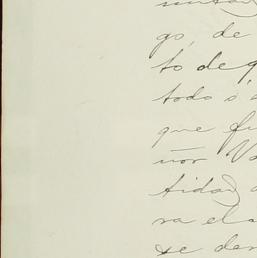 go, de
to de q
todo s
que fu
ñor Va
tidad
ra el
se den